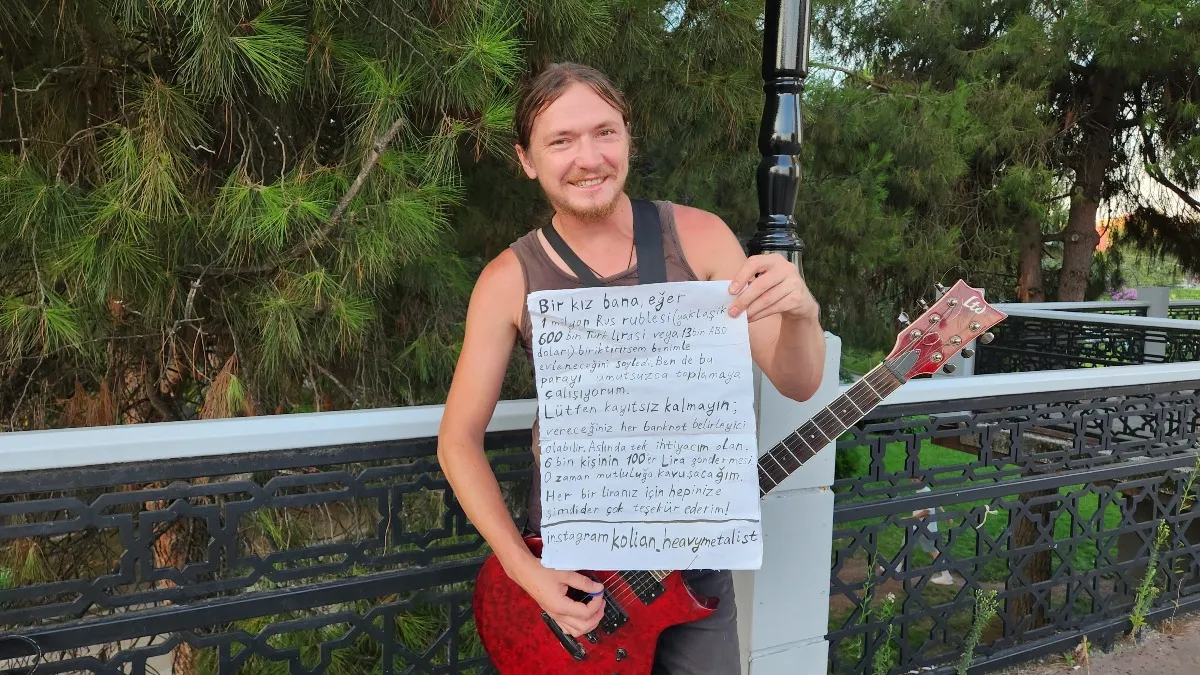 Bir kız bana, eğer
1 milyon Rus rublesi (yaklaşık
600 bin Türk Lirası veya 13 bin ABD
doları) biriktirirsem benimle
evleneceğini söyledi. Ben de bu
parayı umutsuzca toplamaya
çalışıyorum.
Lütfen kayıtsız kalmayın;
vereceğiniz her banknot belirleyici
olabilir. Aslında tek ihtiyacım olan,
6 bin kişinin 100'er Lira göndermesi
O zaman mutluluğa kavuşacağım.
Her bir liranız için hepinize
şimdider çok teşekür ederim!
instagram kolian_heavymetalist
Ltd